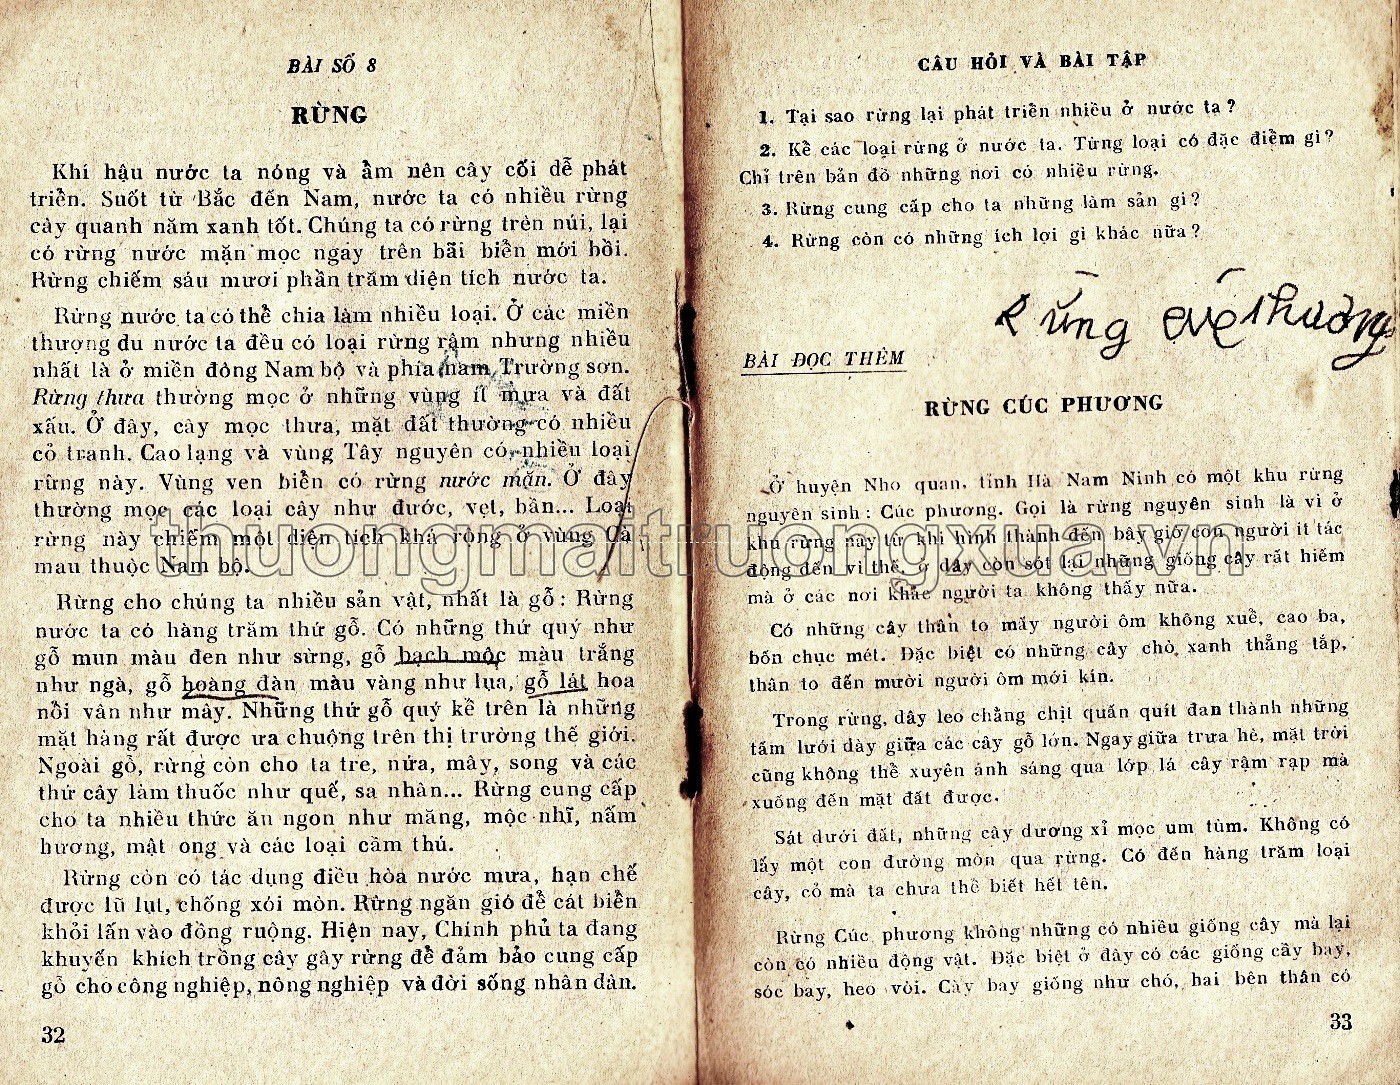 BÀI SỐ 8
RỪNG
Khí hậu nước ta nóng và ẩm nên cây cối dễ phát
triển. Suốt từ Bắc đến Nam, nước ta có nhiều rừng
cây quanh năm xanh tốt. Chúng ta có rừng trên núi, lại
có rừng nước mặn mọc ngay trên bãi biển mới bồi.
Rừng chiếm sáu mươi phần trăm diện tích nước ta.
Rừng nước ta có thể chia làm nhiều loại. Ở các miền
thượng du nước ta đều có loại rừng rậm nhưng nhiều
nhất là ở miền đông Nam bộ và phía nam Trường sơn.
Rừng thưa thường mọc ở những vùng ít mưa và đất
xấu. Ở đây, cây mọc thưa, mặt đất thường có nhiều
cỏ tranh. Cao lạng và vùng Tây nguyên có nhiều loại
rừng này. Vùng ven biển có rừng nước mặn. Ở đây
thường mọc các loại cây như đước, vẹt, bần... Loại
rừng này chiếm một diện tích khá rộng ở vùng Cà
mau thuộc Nam bộ.
Rừng cho chúng ta nhiều sản vật, nhất là gỗ: Rừng
nước ta có hàng trăm thứ gỗ. Có những thứ quý như
gỗ mun màu đen như sừng, gỗ bạch mộc màu trắng
như ngà, gỗ hoàng đàn màu vàng như lụa, gỗ lát hoa
nổi vân như mây. Những thứ gỗ quý kể trên là những
mặt hàng rất được ưa chuộng trên thị trường thế giới.
Ngoài gỗ, rừng còn cho ta tre, nứa, mây, song và các
thứ cây làm thuốc như quế, sa nhân... Rừng cung cấp
cho ta nhiều thức ăn ngon như măng, mộc nhĩ, nấm
hương, mật ong và các loại cầm thú.
Rừng còn có tác dụng điều hòa nước mưa, hạn chế
được lũ lụt, chống xói mòn. Rừng ngăn gió để cát biển
khỏi lấn vào đồng ruộng. Hiện nay, Chính phủ ta đang
khuyến khích trồng cây gây rừng để đảm bảo cung cấp
gỗ cho công nghiệp, nông nghiệp và đời sống nhân dân.
32
CÂU HỎI VÀ BÀI TẬP
1. Tại sao rừng lại phát triển nhiều ở nước ta?
2. Kể các loại rừng ở nước ta. Từng loại có đặc điểm gì?
Chỉ trên bản đồ những nơi có nhiều rừng.
3. Rừng cung cấp cho ta những lâm sản gì?
4. Rừng còn có những ích lợi gì khác nữa?
Rừng thường
BÀI ĐỌC THÊM
RỪNG CÚC PHƯƠNG
Ở huyện Nho quan, tỉnh Hà Nam Ninh có một khu rừng
nguyên sinh: Cúc phương. Gọi là rừng nguyên sinh là vì ở
khu rừng này từ khi hình thành đến bây giờ con người ít tác
động đến vì thế, ở đây còn sót lại những giống cây rất hiếm
mà ở các nơi khác người ta không thấy nữa.
Có những cây thân to mấy người ôm không xuể, cao ba,
bốn chục mét. Đặc biệt có những cây chò xanh thẳng tắp,
thân to đến mười người ôm mới kín.
Trong rừng, dây leo chằng chịt quấn quít đan thành những
tấm lưới dày giữa các cây gỗ lớn. Ngay giữa trưa hè, mặt trời
cũng không thể xuyên ánh sáng qua lớp lá cây rậm rạp mà
xuống đến mặt đất được.
Sát dưới đất, những cây dương xỉ mọc um tùm. Không có
lấy một con đường mòn qua rừng. Có đến hàng trăm loại
cây, cỏ mà ta chưa thể biết hết tên.
Rừng Cúc phương không những có nhiều giống cây mà lại
còn có nhiều động vật. Đặc biệt ở đây có các giống cầy bay,
sóc bay, heo vòi. Cầy bay giống như chó, hai bên thân có
33
thuongmaitruongxua.vn